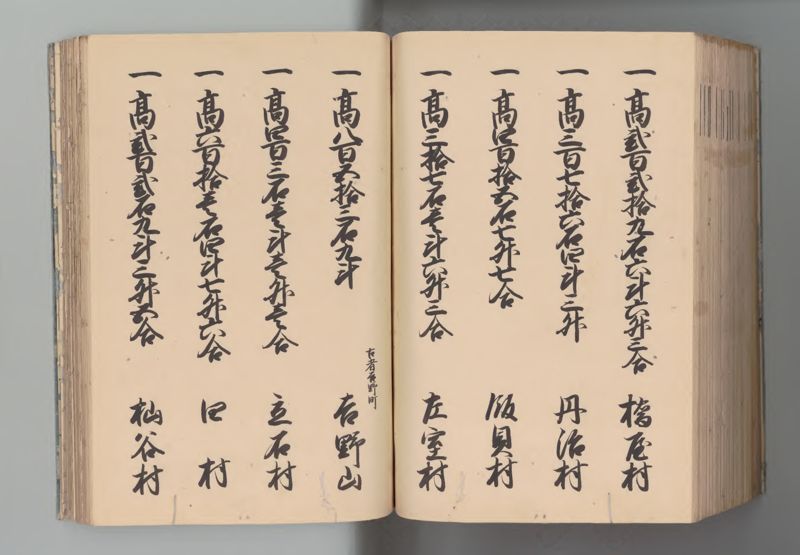 一 高弐百弐拾九石六斗六升三合 橋屋村
一 高三百七拾六石四斗三升 丹治村
一 高四百拾六石七升七合 飯貝村
一 高三拾七石壱斗六升三合 左室村
古者吉野町
一 高八百五拾三石九斗 吉野山
一 高四百三石壱斗壱升壱合 立石村
一 高六百拾壱石四斗七升六合 口村
一 高弐百弐石九斗三升五合 杣谷村